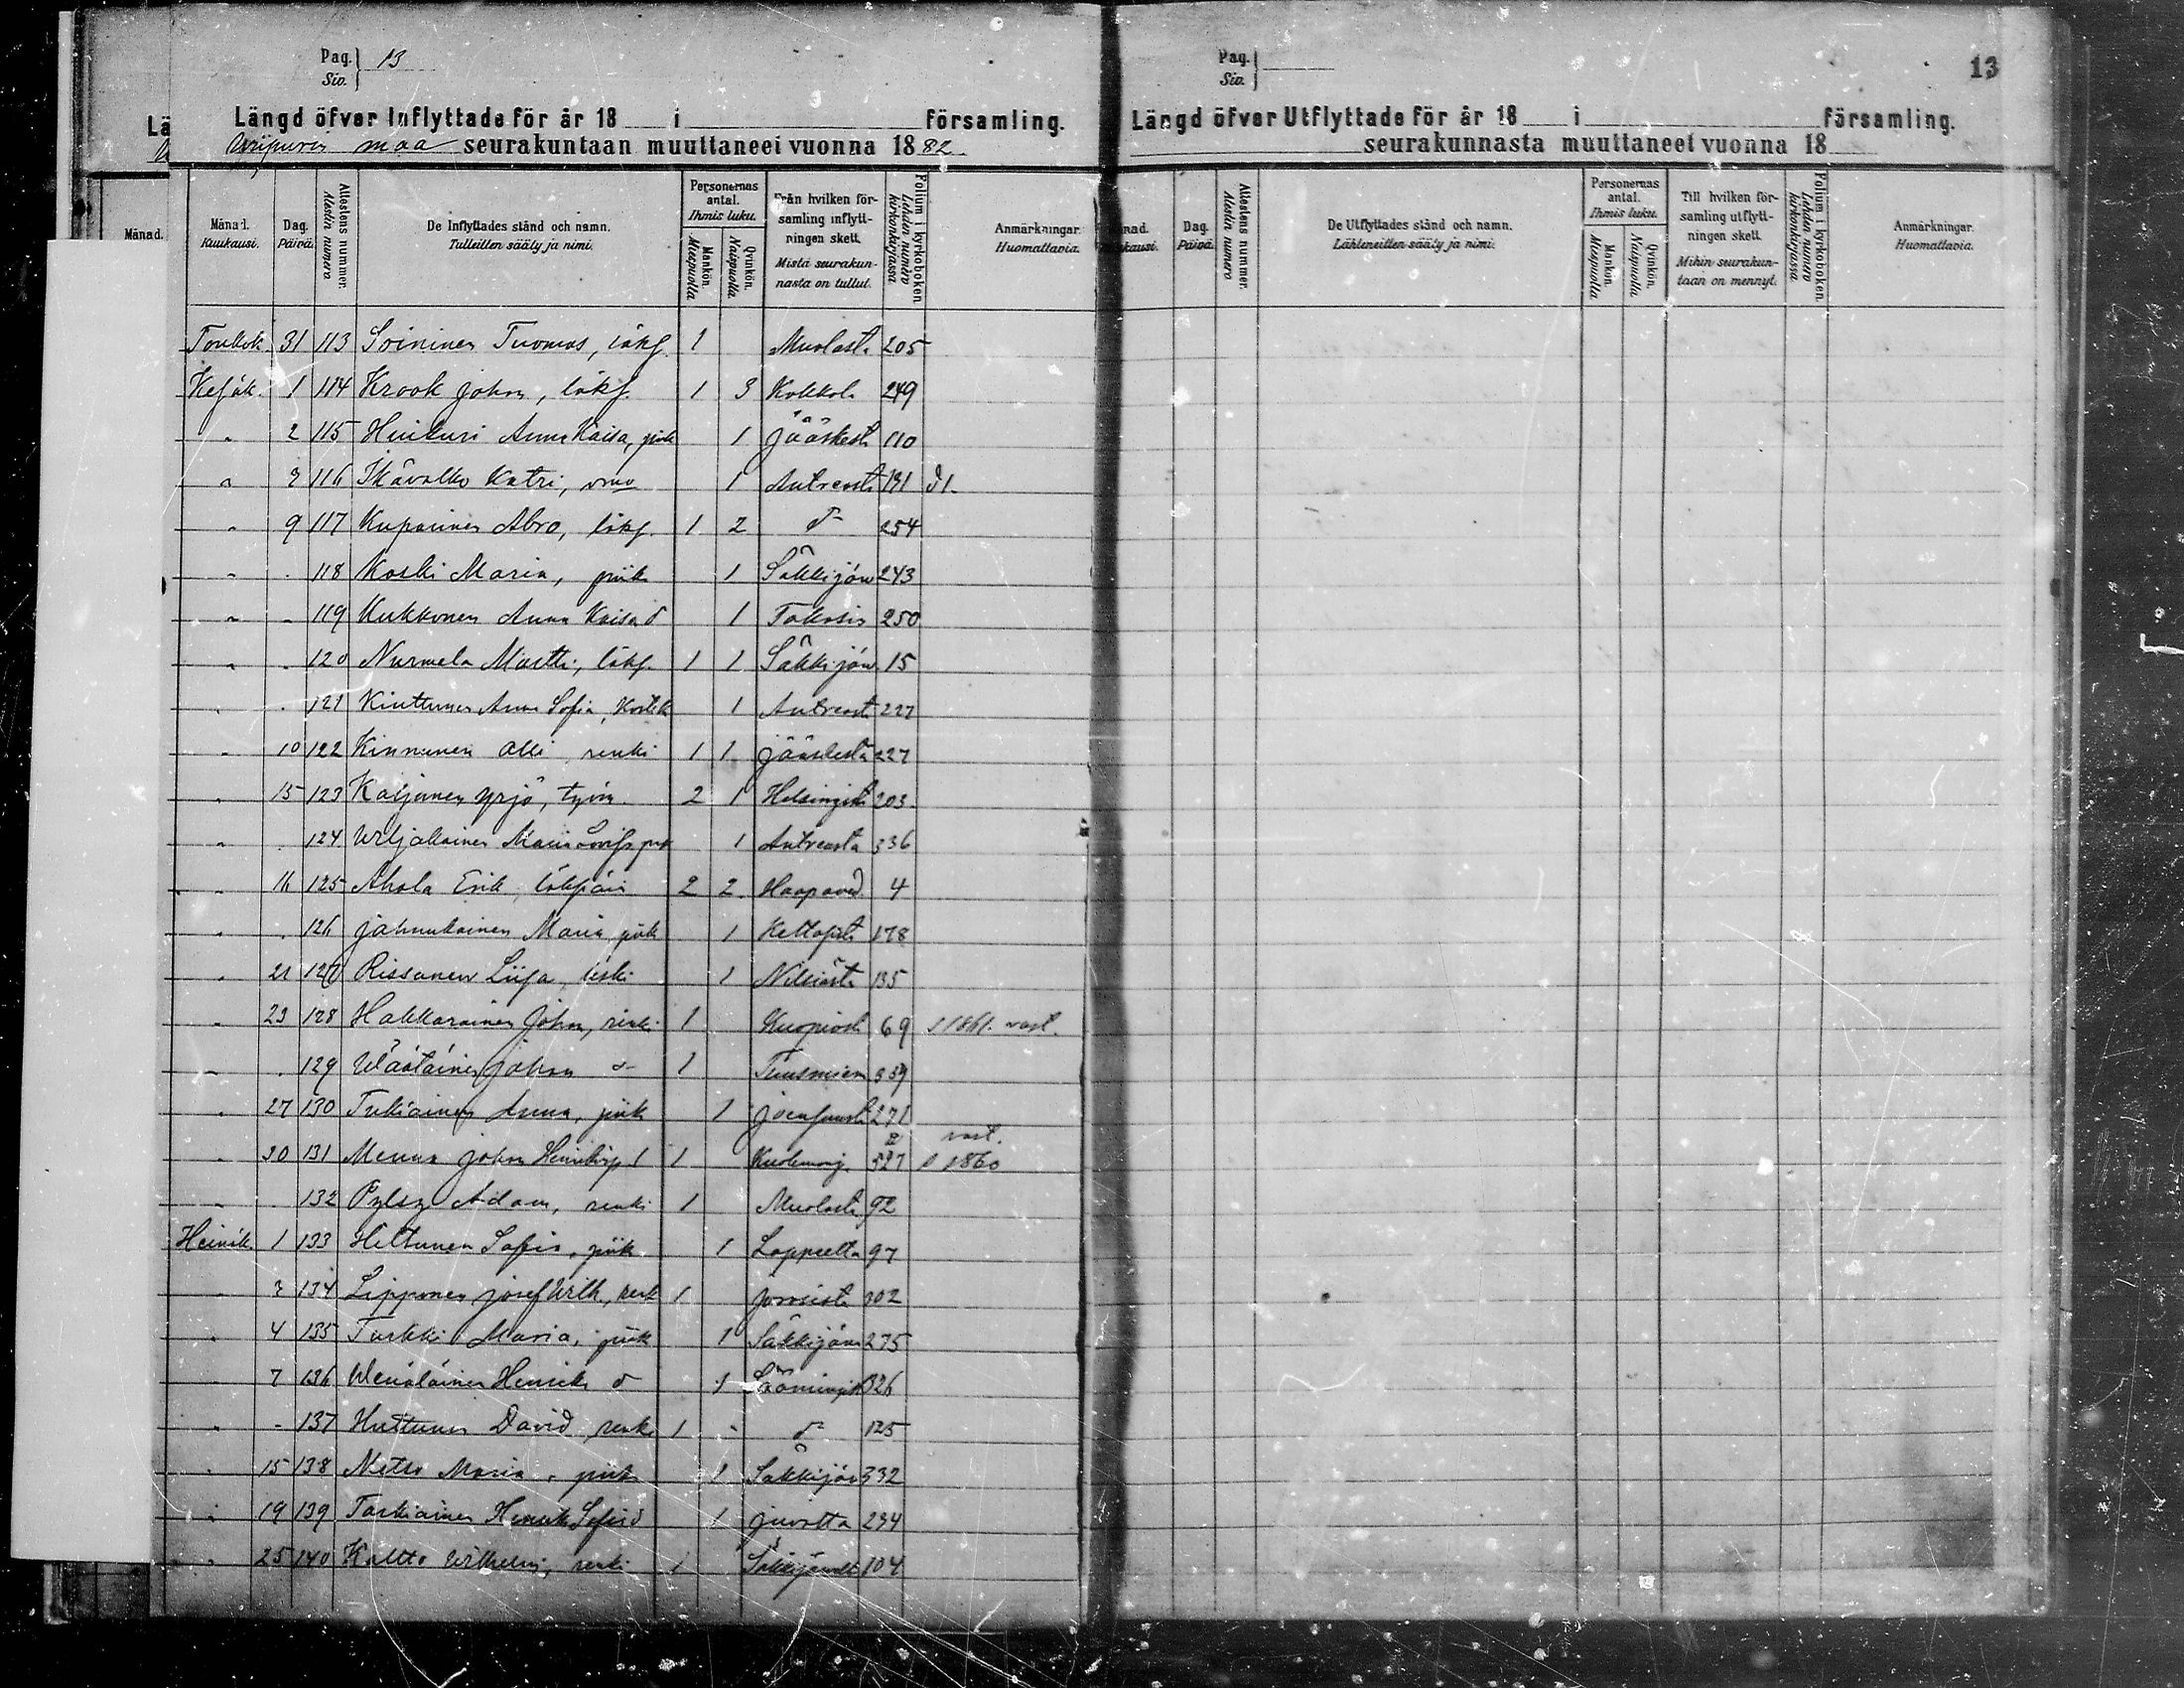 Pag. 13
Siv.
Längd öfver Inflyttade för år 18 i församling.
Wiipurin maa seurakuntaan muuttaneet vuonna 1882.
Månad. Kuukausi.
Dag. Päivä.
Attestens nummer. Atestin numero
De Inflyttades stånd och namn. Tulleitten sääty ja nimi.
Personernas antal. Ihmis luku.
Mankön. Miespuolia
Qvinkön. Naispuolia
Från hvilken församling inflyttningen skett. Mistä seurakunnasta on tullut.
Folium i kyrkoboken Lehden numero kirkonkirjassa
Anmärkningar. Huomattavia.
Toukok 31 113 Soininen Tuomas, lökf. 1 Muolasta 205
Kesäk. 1 114 Krook Johan, lökf. 1 3 Kokkol. 249
" 2 115 Hinkuri Anna Kaisa, piik 1 Jääskestä 110
" 3 116 Ikävalko Katri, 1 Antreasta 191
" 9 117 Kuparinen Abro, lökf. 1 2 d:o 254
" " 118 Koski Maria, piika 1 Säkkijärv 243
" " 119 Kukkonen Anna Kaisa d 1 250
" " 120 Nurmela Martti, lökf. 1 1 Säkkijärv. 15
" " 121 Kinttunen Anna Sofia, 1 Antreasta 227
" 10 122 Kinnunen Olli, renki 1 1 Jääskestä 227
" 15 123 Kaijanen Yrjö, työm. 2 1 Helsingistä 203
" " 124 Wiljakainen Maria Lovisa piik 1 Antreasta 336
" 16 125 Ahola Erik, 2 2 Haapaved 4
" " 126 Jahnukainen Maria piik 1 178
" 21 127 Rissanen Liisa, leski 1 Nilsiästä 135
" 23 128 Hakkarainen Johan, renki 1 Kuopiosta 69 s 1861.
" " 129 Wäätäinen Johan d:o 1 Tuusniem 339
" 27 130 Tukiainen Anna, piik 1 Joensuusta 271
" 30 131 Menna Johan Heinikinp. 1 Kuolemaj. 327 s 1860
" " 132 Pylsy Adam, renki 1 Muolasta 92
Heinäk. 1 133 Hiltunen Sofia, piik 1 Lappeelta 97
" 3 134 Lipponen Josef Wilh., renk 1 Joroisista 302
" 4 135 Turkki Maria, piik 1 Säkkijärv 275
" 7 136 Wenäläinen Henrika d 1 Säämingistä 326
" " 137 Huttunen David, renki 1 " d:o 125
" 15 138 Metso Maria, piik 1 Säkkijärv 332
" 19 139 Tarkiainen Henrika Sofia d 1 Juvalta 294
" 25 140 Kaltto Wilhelm, renki 1 Säkkijärveltä 104
Pag. 13
Siv.
Längd öfver Utflyttade för år 18 i församling.
seurakunnasta muuttaneet vuonna 18
Månad. Kuukausi.
Dag. Päivä.
Attestens nummer. Atestin numero
De Utflyttades stånd och namn. Lähteneitten sääty ja nimi.
Personernas antal. Ihmis luku.
Mankön. Miespuolia
Qvinkön. Naispuolia
Till hvilken församling utflyttningen skett. Mihin seurakuntaan on mennyt.
Folium i kyrkoboken. Lehden numero kirkonkirjassa.
Anmärkningar. Huomattavia.